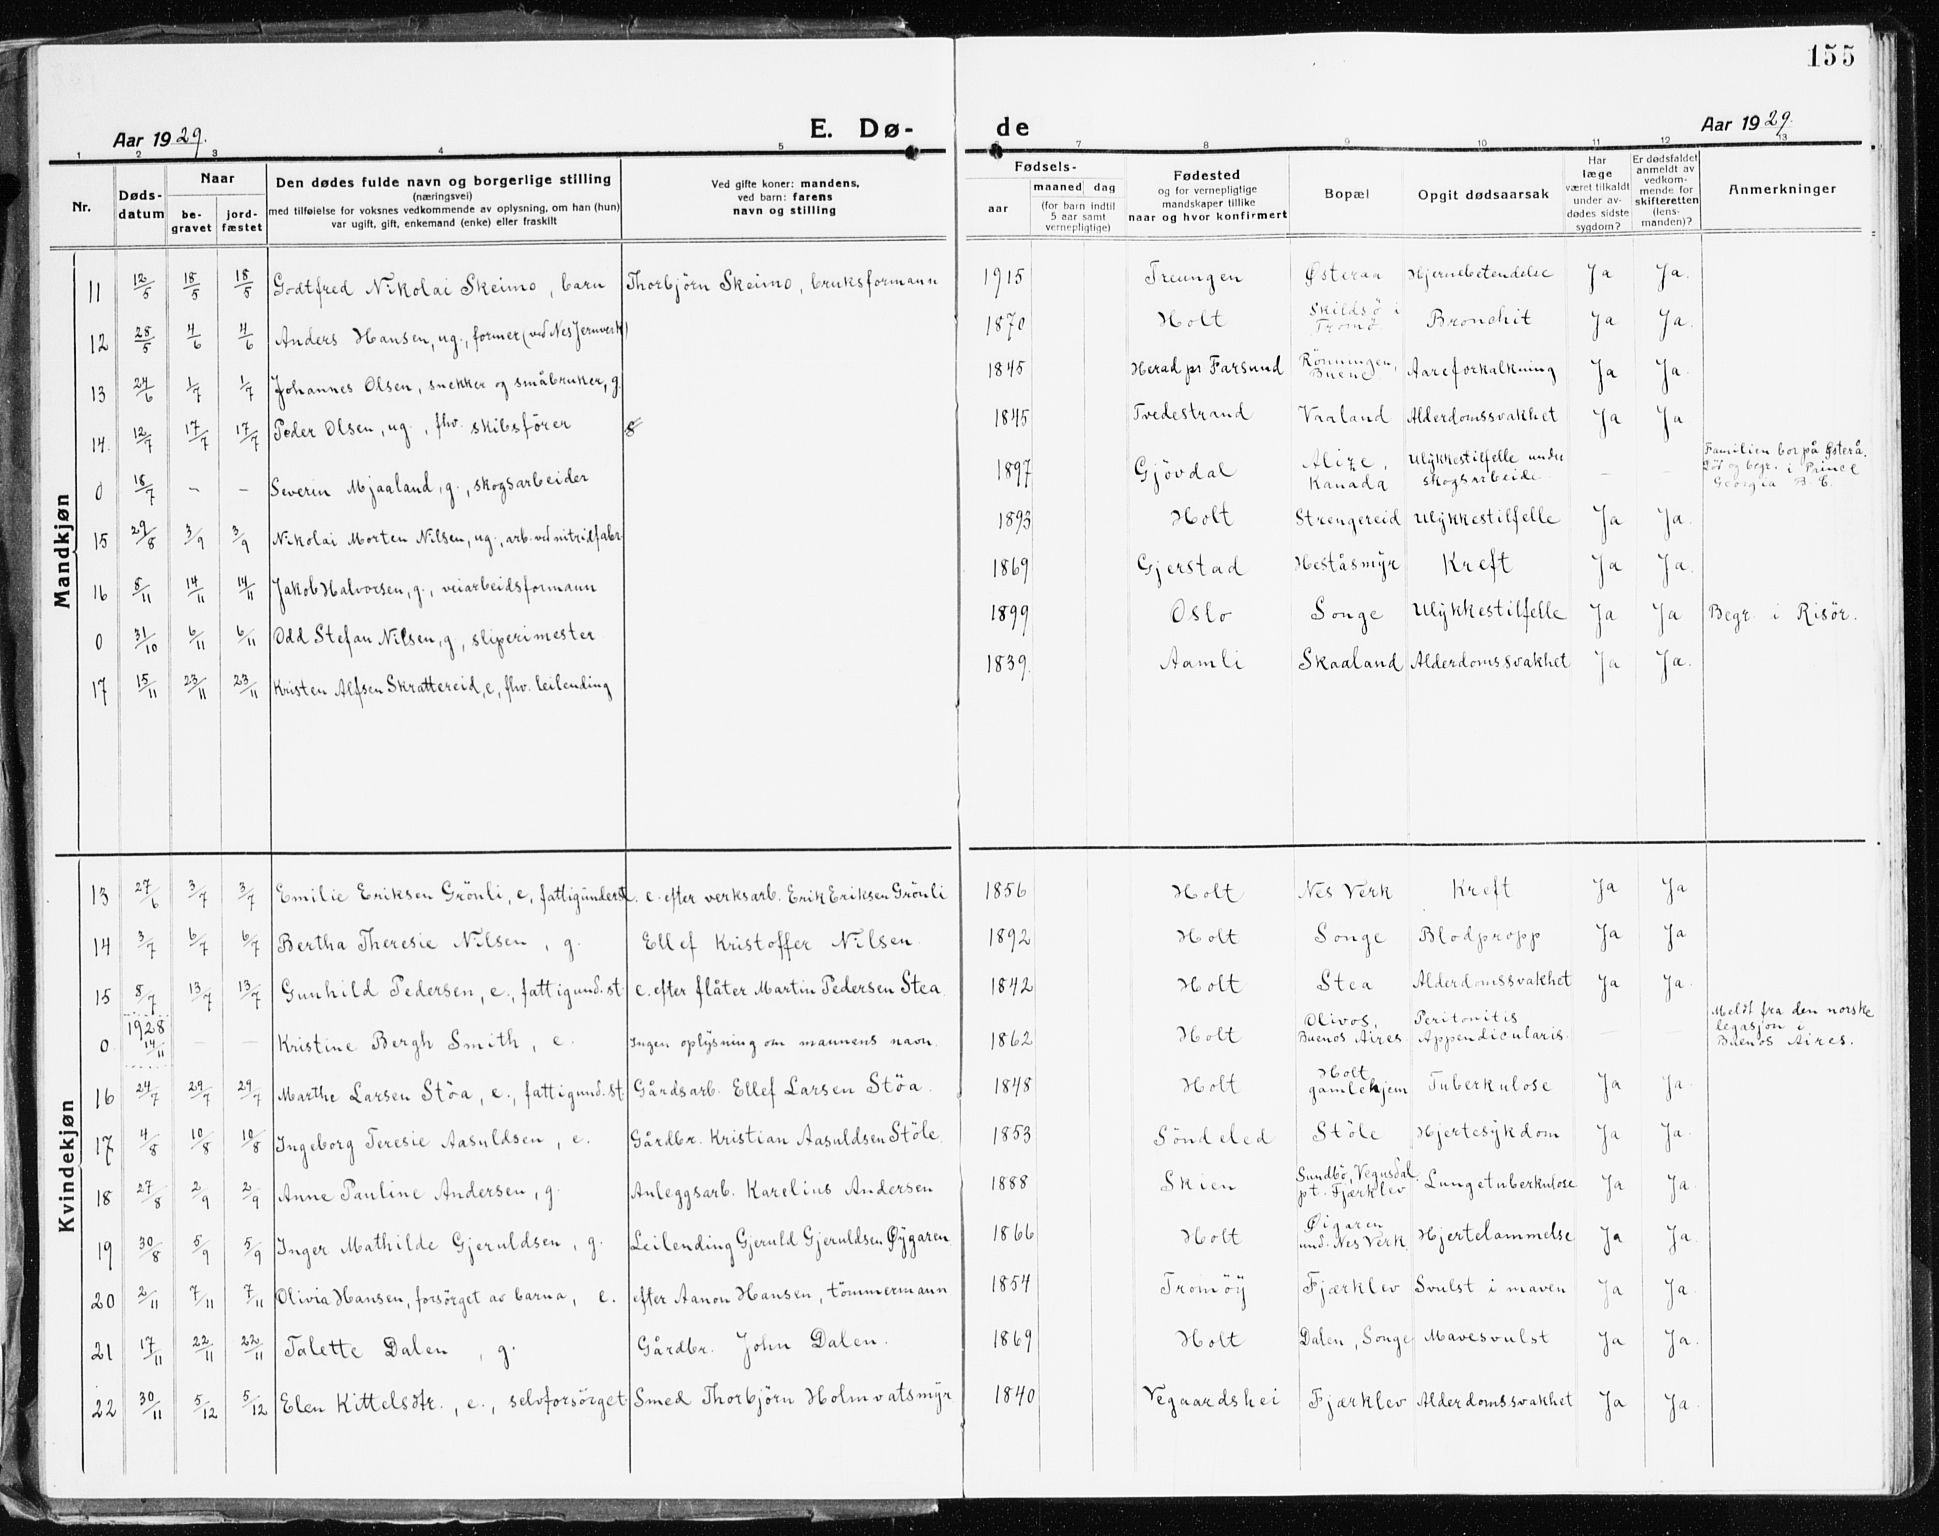 155
Aar 1929.
E. Dø-
de
Aar 1929.
1 2 3 4 5 7 8 9 10 11 12 13
Nr.
Døds-
datum
Naar
be-
gravet
jord-
fæstet
Den dødes fulde navn og borgerlige stilling
(næringsvei)
med tilføielse for voksnes vedkommende av oplysning, om han (hun)
var ugift, gift, enkemand (enke) eller fraskilt
Ved gifte koner: mandens,
ved barn: farens
navn og stilling
Fødsels-
aar
maaned dag
(for barn indtil
5 aar samt
vernepligtige)
Fødested
og for vernepligtige
mandskaper tillike
naar og hvor konfirmert
Bopæl
Opgit dødsaarsak
Har
læge
været tilkaldt
under av-
dødes sidste
sygdom?
Er dødsfaldet
anmeldt av
vedkom-
mende for
skifteretten
(lens-
manden)?
Anmerkninger
Mandkjøn
11 12/5 18/5 18/5 Godtfred Nikolai Skeimo, barn Thorbjörn Skeimo, bruksformann 1915 Treungen Østeraa Hjernebetendelse Ja Ja.
12 28/5 4/6 4/6 Anders Hansen, ug., former (ved Nes Jernverk) 1870 Holt Skildsö i Tromø. Bronchit Ja Ja.
13 24/6 1/7 1/7 Johannes Olsen, snekker og småbruker, g. 1845 Herad pr Farsund Rönningen, Buene Aareforkalkning Ja Ja.
14. 12/7 17/7 17/7 Peder Olsen, ug., fhv. skibsfører 1845 Tvedestrand Vaaland Alderdomssvakhet Ja Ja
0 18/7 – – Severin Mjaaland, g., skogsarbeider 1897 Gjövdal Alize, Kanada Ulykkestilfelle under skogsarbeide. – – Familien bor på Østerå. Död og begr. i Prince Georgia B. C.
15 29/8 3/9 3/9 Nikolai Morten Nilsen, ug., arb. ved nitridfabr. 1893 Holt Strengereid Ulykkestilfelle Ja Ja.
16 8/11 14/11 14/11 Jakob Halvorsen, g., veiarbeidsformann 1869 Gjerstad Heståsmyr Kreft Ja Ja.
0 31/10 6/11 6/11 Odd Stefan Nilsen, g., sliperimester 1899 Oslo Songe Ulykkestilfelle Ja Ja Begr. i Risör.
17 15/11 23/11 23/11 Kristen Alfsen Skrattereid, e, fhv. leilending 1839. Aamli Skaaland Alderdomssvakhet Ja Ja.
Kvindekjøn
13 27/6 3/7 3/7 Emilie Eriksen Grönli, e, fattigunderst. e. efter verksarb. Erik Eriksen Grönli 1856 Holt Nes Verk Kreft Ja Ja
14 3/7 6/7 6/7 Bertha Theresie Nilsen, g. Ellef Kristoffer Nilsen. 1892 Holt Songe Blodpropp Ja Ja
15 8/7 13/7 13/7 Gunhild Pedersen, e., fattigund.st. e. efter flåter Martin Pedersen Stea. 1842 Holt Stea Alderdomssvakhet Ja Ja
0. 1928 14/11 – – Kristine Bergh Smith, e. Ingen oplysning om mannens navn. 1862 Holt Olivos, Buenos Aires Peritonitis Appendicularis. – – Meldt fra den norske legasjon i Buenos Aires.
16 24/7 29/7 29/7 Marthe Larsen Stöa, e., fattigund.st. Gårdsarb. Ellef Larsen Stöa. 1848 Holt Holt gamlehjem Tuberkulose Ja Ja.
17 4/8 10/8 10/8 Ingeborg Teresie Aasuldsen, e. Gårdbr. Kristian Aasuldsen Stöle. 1853 Söndeled Stöle Hjertesykdom Ja Ja.
18 27/8 2/9 2/9 Anne Pauline Andersen, g. Anleggsarb. Karelius Andersen 1888 Skien Sundbö, Vegusdal. pt. Fjærklev Lungetuberkulose Ja Ja.
19 30/8 5/9 5/9 Inger Mathilde Gjeruldsen, g. Leilending Gjeruld Gjeruldsen Øygaren 1866 Holt Øigaren und. Nes Verk. Hjertelammelse Ja Ja.
20 2/11 7/11 7/11 Olivia Hansen, forsörget av barna, e. efter Aanon Hansen, tömmermann 1854 Tromöy Fjærklev Svulst i maven Ja Ja.
21 17/11 22/11 22/11 Talette Dalen, g. Gårdbr. John Dalen. 1869 Holt Dalen, Songe Mavesvulst Ja Ja.
22 30/11 5/12 5/12 Elen Kittelsdtr., e., selvforsörget. Smed Thorbjörn Holmvatsmyr 1840 Vegaardshei Fjærklev Alderdomssvakhet Ja Ja.